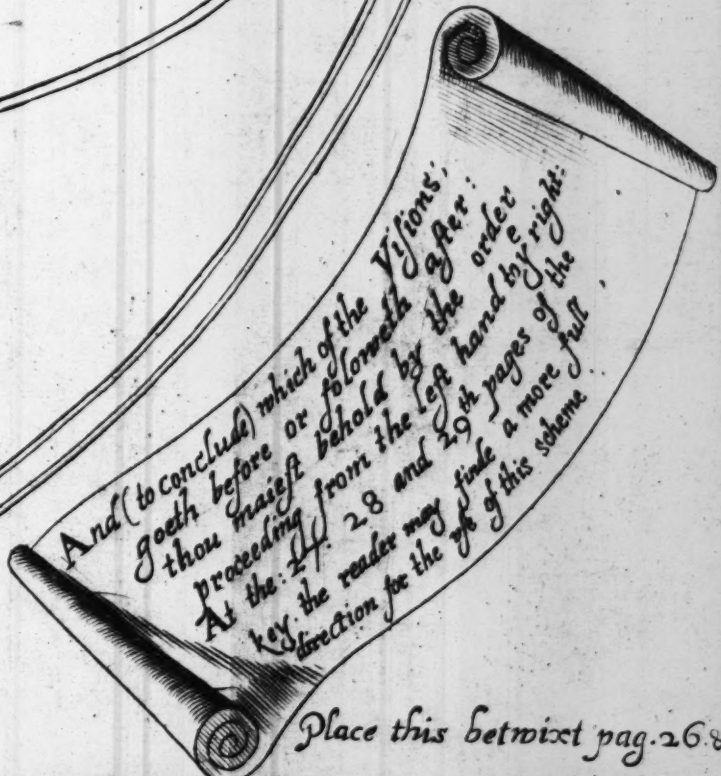 And (to conclude) which of the Visions;
goeth before or foloweth after:
thou maiest behold by the order
proceeding from the left hand to yͤ right:
At the: 24. 28 and 29th pages of the
key the reader may finde a more full
direction for the vse of this scheme
Place this betwixt pag. 26. &